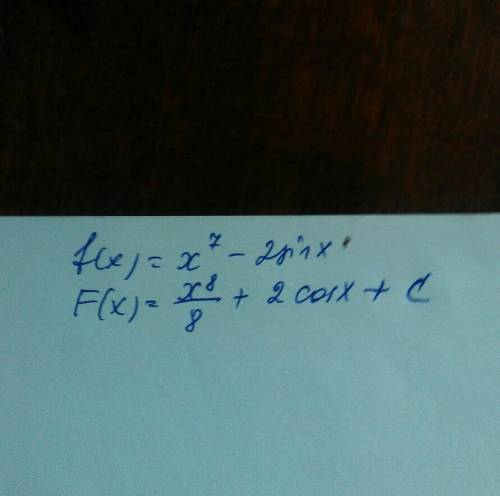 f(x) = x⁷ - 2sinx
F(x) = x⁸/8 + 2cosx + C